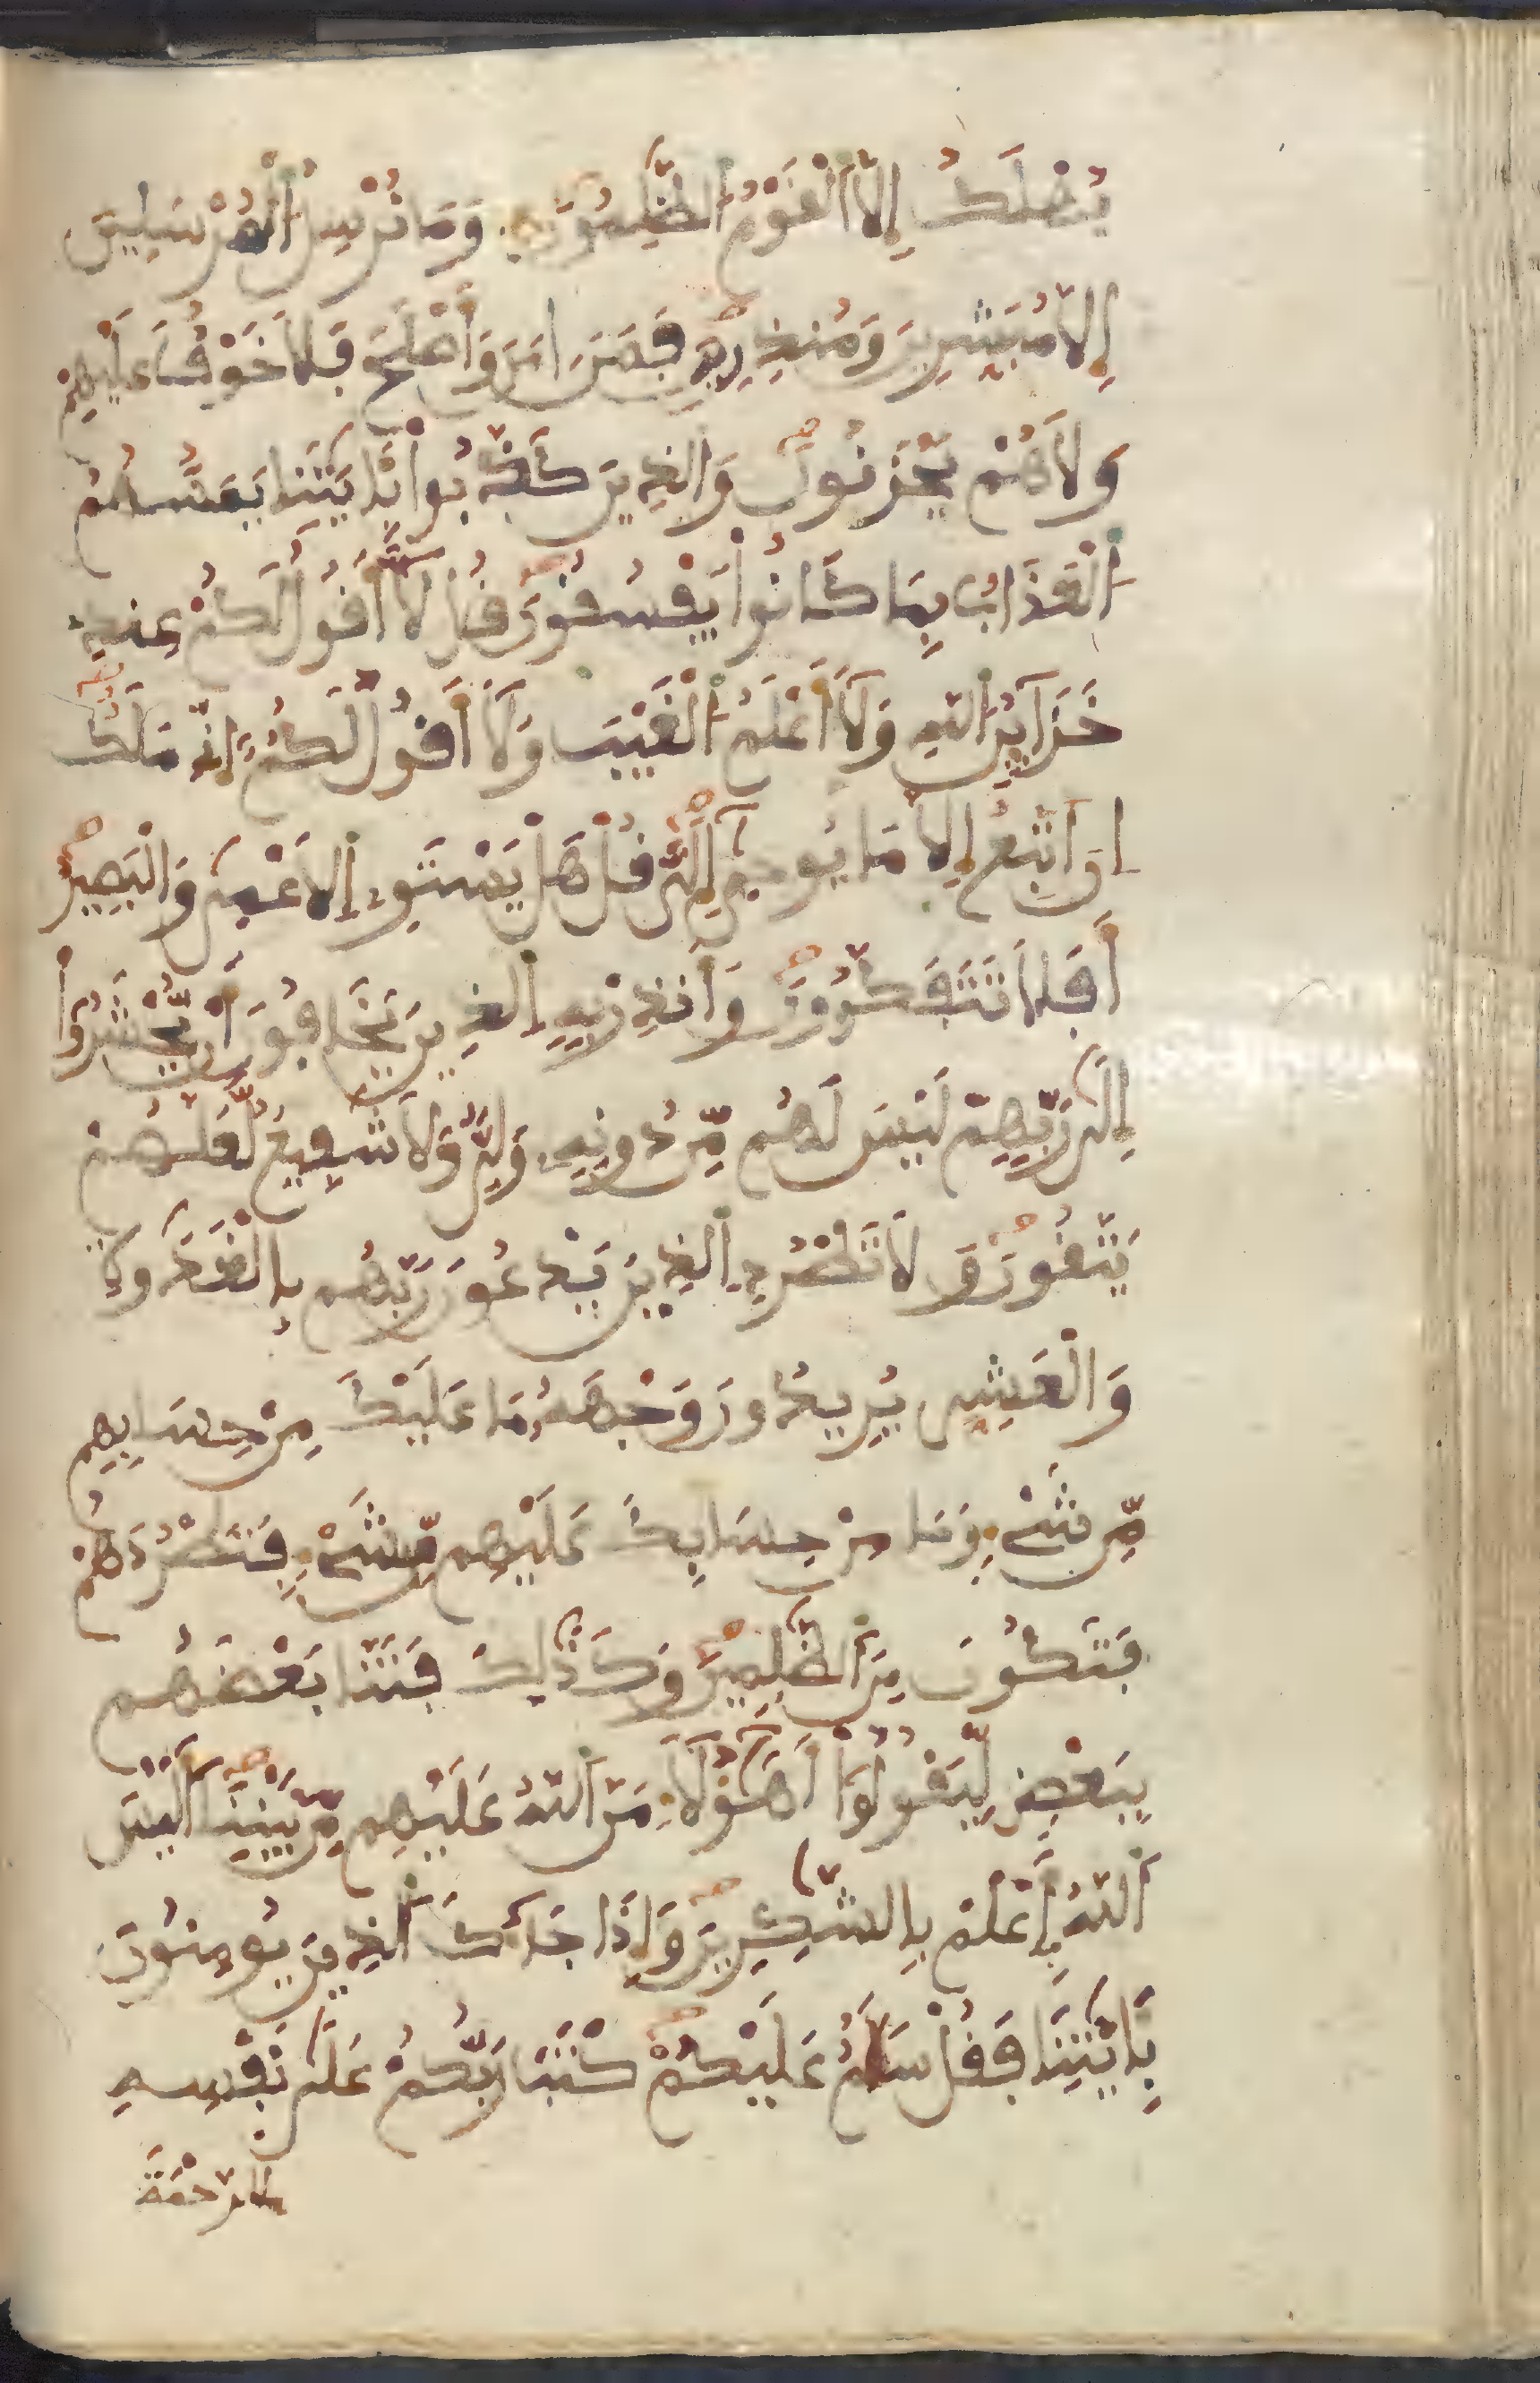 يُهْلَكُ إِلَّا اَلْفَوْمُ اُلظَّٰلِمُونَ وَمَا نُرْسِلُ اُلْمُرْسَلِينَ
إِلَّا مُبَشِّرِينَ وَمُنذِرِينَ ڢَمَنَ اٰمَنَ وَأَصْلَحَ ڢَلَا خَوْڢٌ عَلَيْهِمْ
وَلَا هُمْ يَحْزَنُونَ وَالذِينَ كَذَّبُواْ بِـَٔايَٰتِنَا يَمَسُّهُمُ
اُلْعَذَابُ بِمَا كَانُواْ يَڢْسُفُونَ فُل لَّا أَفُولُ لَكُمْ عِندِے
خَزَآئِنُ اُللَّهِ وَلَا أَعْلَمُ اُلْغَيْبَ وَلَا أَفُولُ لَكُمُۥ إِنِّے مَلَكٌ
اِنَ اَتَّبِعُ إِلَّا مَا يُوحَىٰ إِلَىَّ فُلْ هَلْ يَسْتَوِے اِلَاعْمَىٰ وَالْبَصِيرُ
أَڢَلَا تَتَڢَكَّرُونَ وَأَنذِرْ بِهِ اِلذِينَ يَخَاڢُونَ أَنْ يُّحْشَرُواْ
إِلَىٰ رَبِّهِمْ لَيْسَ لَهُم مِّن دُونِهِۦ وَلِيٌّ وَلَا شَڢِيعٌ لَّعَلَّهُمْ
يَتَّفُونَ وَلَا تَطْرُدِ اِلذِينَ يَدْعُونَ رَبَّهُم بِالْغَدَوٰةِ
وَالْعَشِيِّ يُرِيدُونَ وَجْهَهُۥ مَا عَلَيْكَ مِنْ حِسَابِهِم
مِّن شَےْءٍ وَمَا مِنْ حِسَابِكَ عَلَيْهِم مِّن شَےْءٍ ڢَتَطْرُدَهُمْ
ڢَتَكُونَ مِنَ اَلظَّٰلِمِينَ وَكَذَٰلِكَ ڢَتَنَّا بَعْضَهُم
بِبَعْضٍ لِّيَفُولُواْ أَهَٰٓؤُلَآءِ مَنَّ اَللَّهُ عَلَيْهِم مِّنۢ بَيْنِنَا أَلَيْسَ
اَللَّهُ بِأَعْلَمَ بِالشَّٰكِرِينَ وَإِذَا جَآءَكَ اَلذِينَ يُومِنُونَ
بِـَٔايَٰتِنَا ڢَفُلْ سَلَٰمٌ عَلَيْكُمْ كَتَبَ رَبُّكُمْ عَلَىٰ نَڢْسِهِ
اِلرَّحْمَةَ